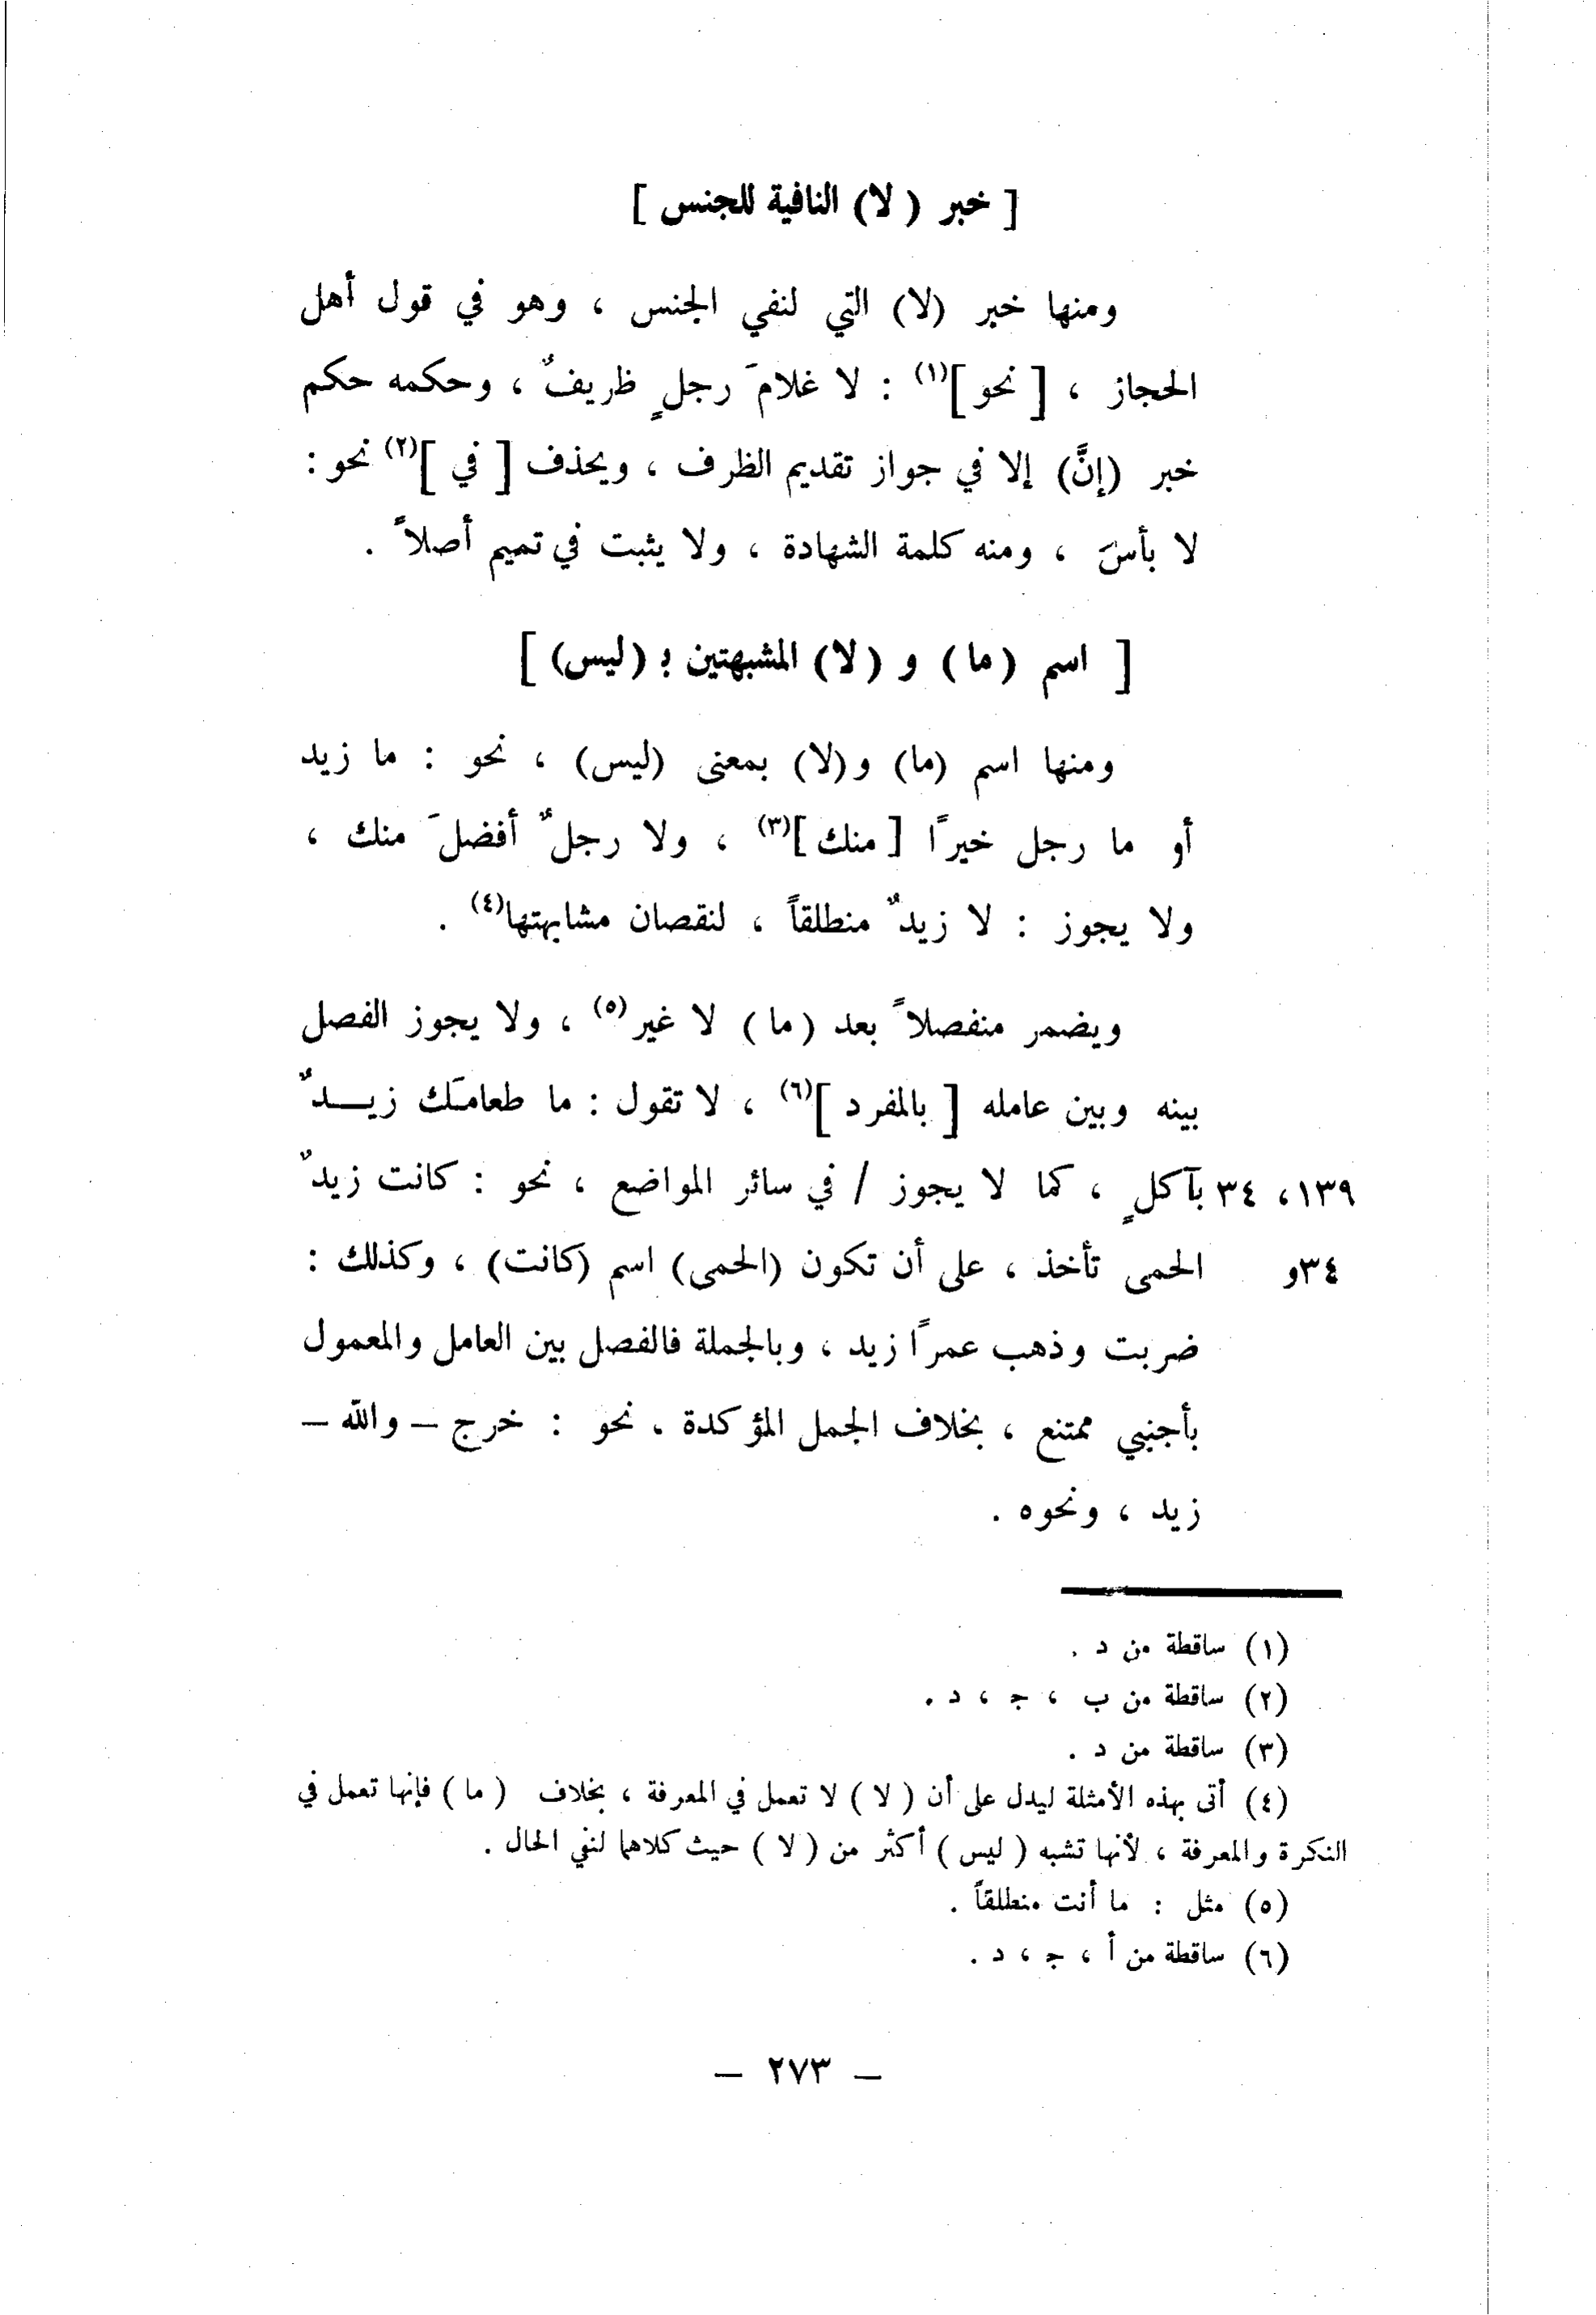 [ خبر ( لا ) النافية للجنس ]
ومنها خبر (لا) التي لنفي الجنس ، وهو في قول أهل
الحجاز ، [ نحو ](١) : لا غلامَ رجلٍ ظريفٌ ، وحكمه حكم
خبر (إنَّ) إلا في جواز تقديم الظرف ، ويحذف [ في ](٢) نحو :
لا بأسَ ، ومنه كلمة الشهادة ، ولا يثبت في تميم أصلاً .
[ اسم ( ما ) و ( لا ) المشبهتين بـ (ليس) ]
ومنها اسم (ما) و(لا) بمعنى (ليس) ، نحو : ما زيد
أو ما رجل خيرًا [ منك ](٣) ، ولا رجلٌ أفضلَ منك ،
ولا يجوز : لا زيدٌ منطلقاً ، لنقصان مشابهتها(٤) .
ويضمر منفصلاً بعد ( ما ) لا غير(٥) ، ولا يجوز الفصل
بينه وبين عامله [ بالمفرد ](٦) ، لا تقول : ما طعامَك زيـدٌ
١٣٩، ٣٤ بآكلٍ ، كما لا يجوز / في سائر المواضع ، نحو : كانت زيدٌ
٣٤و الحمى تأخذ ، على أن تكون (الحمى) اسم (كانت) ، وكذلك :
ضربت وذهب عمرًا زيد ، وبالجملة فالفصل بين العامل والمعمول
بأجنبي ممتنع ، بخلاف الجمل المؤكدة ، نحو : خرج – والله –
زيد ، ونحوه .
(١) ساقطة من د .
(٢) ساقطة من ب ، جـ ، د .
(٣) ساقطة من د .
(٤) أتى بهذه الأمثلة ليدل على أن ( لا ) لا تعمل في المعرفة ، بخلاف ( ما ) فإنها تعمل في
النكرة والمعرفة ، لأنها تشبه ( ليس ) أكثر من ( لا ) حيث كلاهما لنفي الحال .
(٥) مثل : ما أنت منطلقاً .
(٦) ساقطة من أ ، جـ ، د .
– ٢٧٣ –